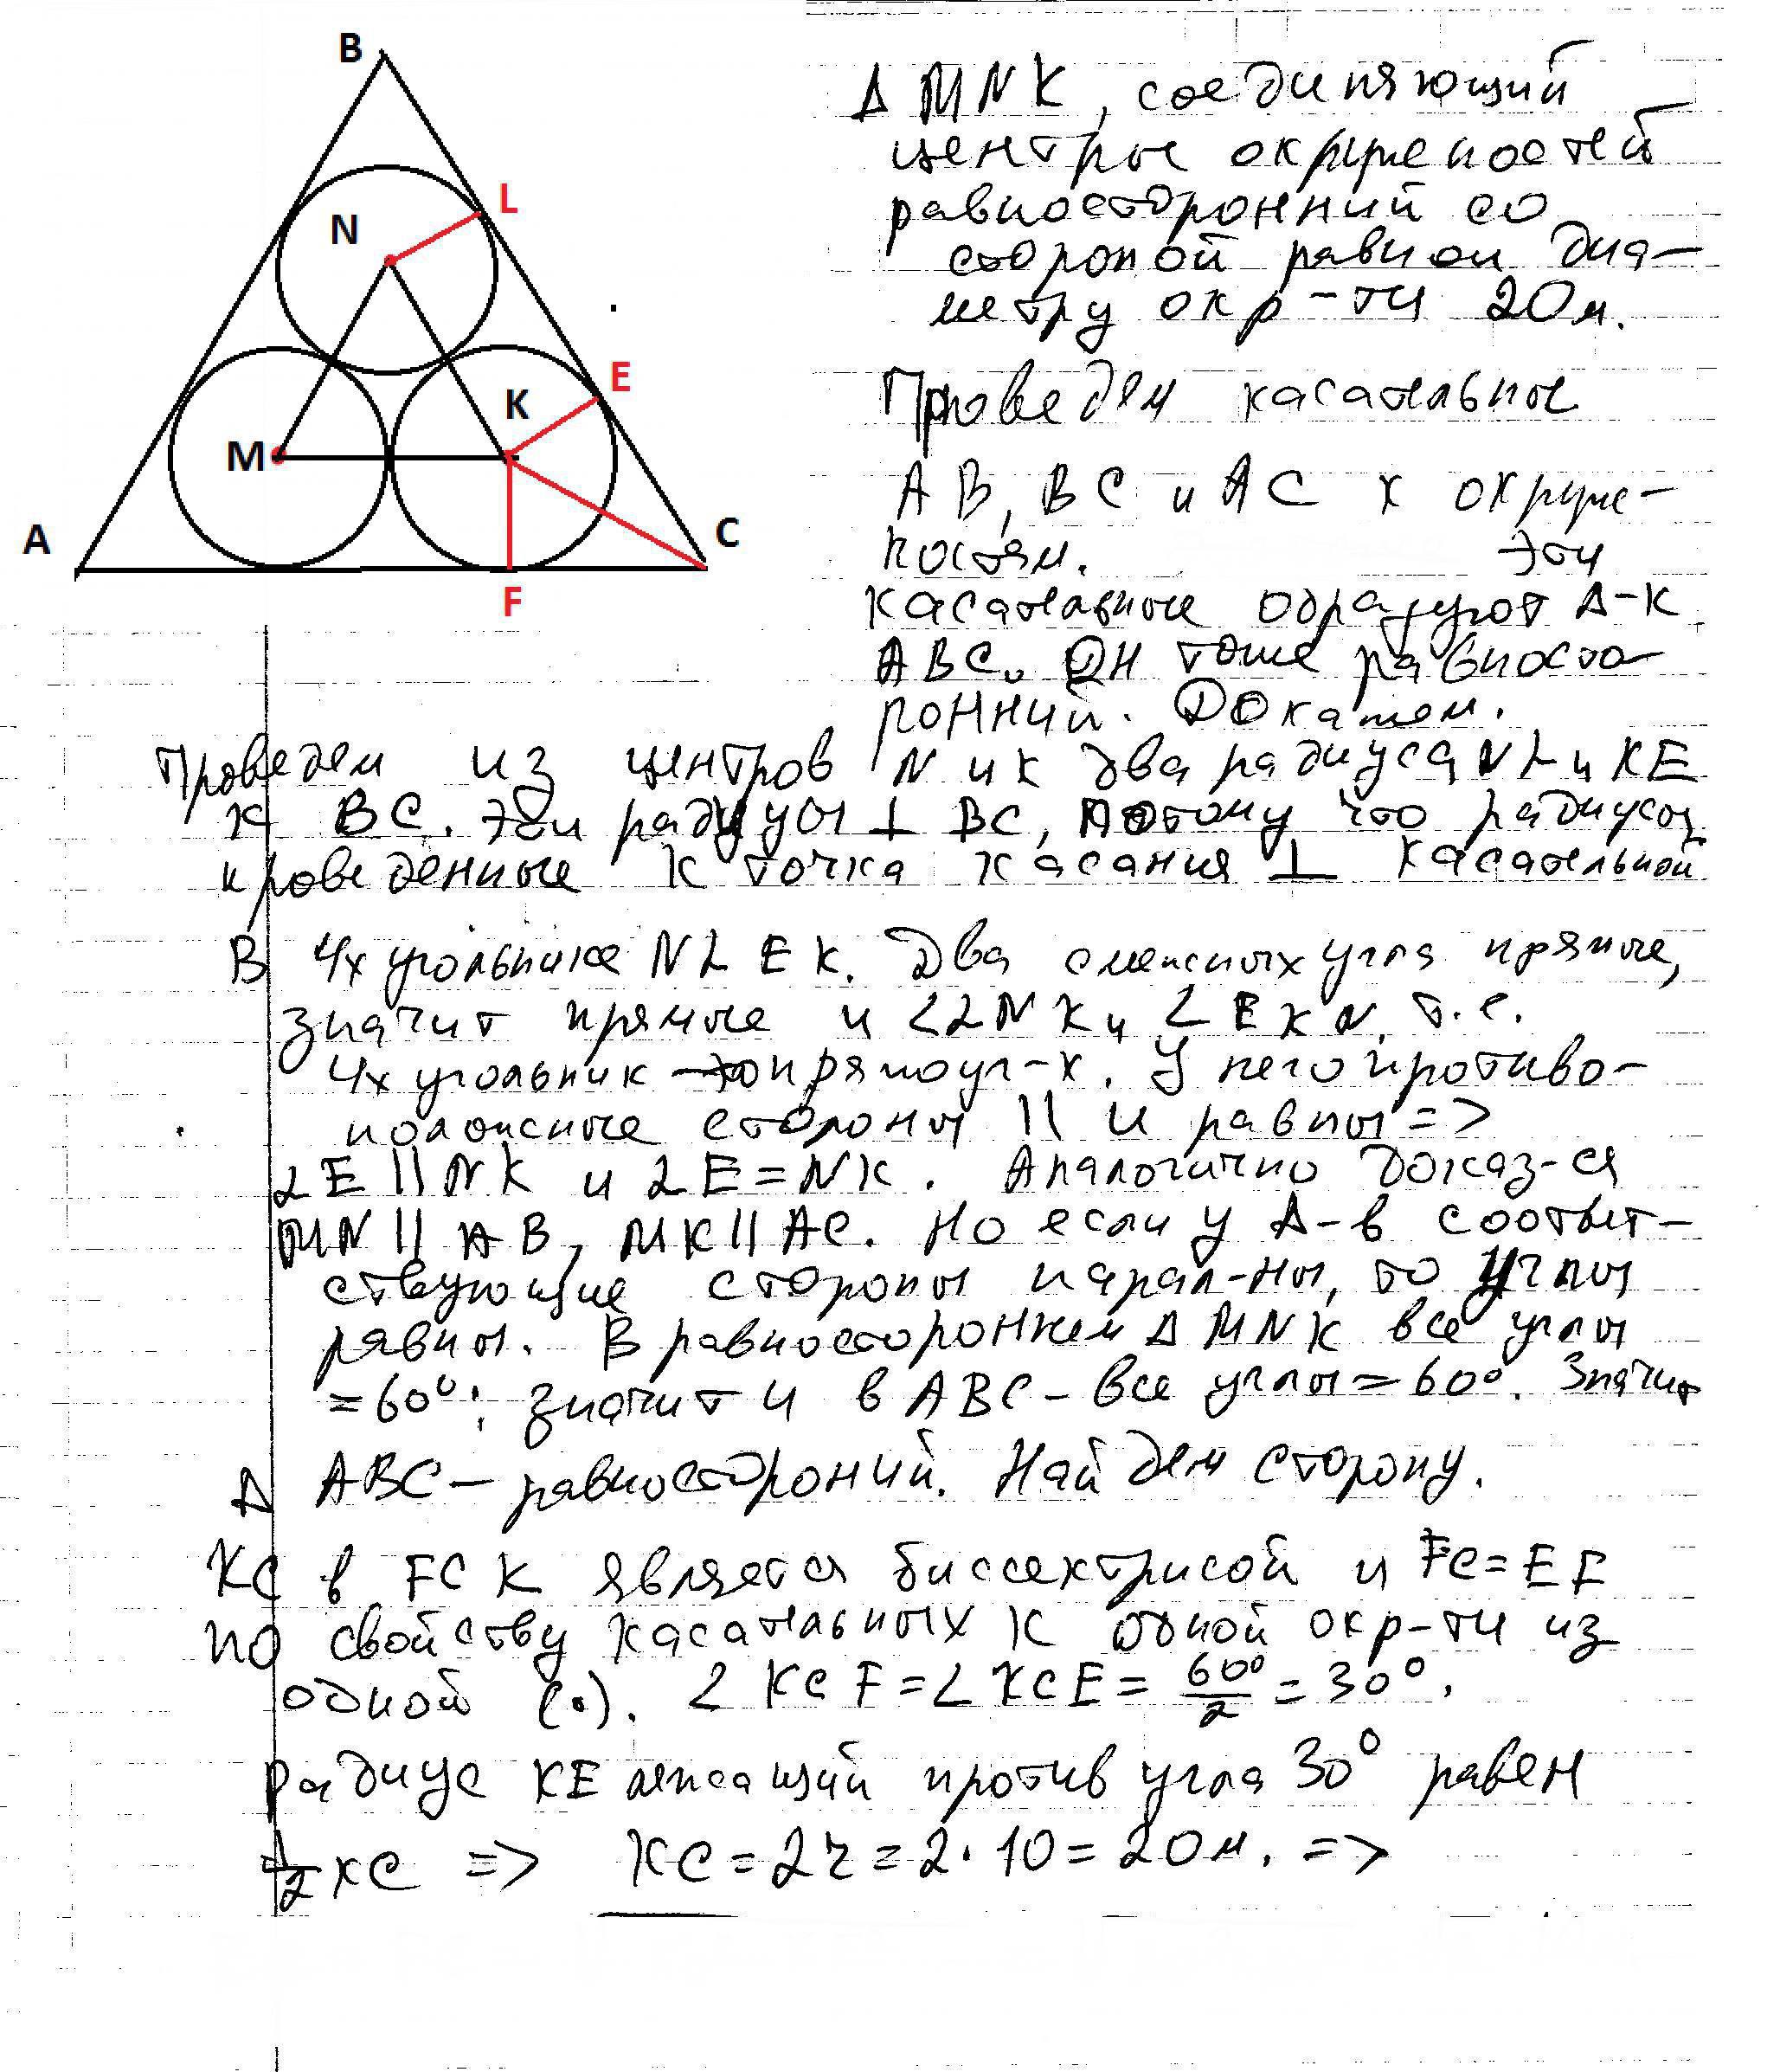 B
L
N
E
K
M
A
C
F
Δ MNK, соединяющий
центры окружностей
равносторонний со
стороной равной диа-
метру окр-ти 20м.
Проведем касательные
AB, BC и AC к окруж-
ностям. эти
касательные образуют Δ-к
ABC. Он тоже равносто-
ронний. Докажем.
Проведем из центров N и K два радиуса NL и KE
к BC. Эти радиусы ⊥ BC, потому что радиусы
проведенные к точка касания ⊥ касательной
В 4х угольнике NLEK. Два смежных угла прямые,
значит прямые и ∠LNK и ∠EKN, т.е.
4х угольник - это прямоуг-к. У него противо-
положные стороны || и равны =>
LE || NK и LE = NK. Аналогично доказ-ся
MN || AB, MK || AC. Но если у Δ-в соответ-
ствующие стороны парал-ны, то углы
равны. В равностороннем Δ MNK все углы
= 60°; значит и в ABC - все углы = 60°. Значит
Δ ABC - равностороний. Найдем сторону.
KC в FCK является биссектрисой и FC = EF
по свойству касательных к одной окр-ти из
одной (.). ∠KCF = ∠KCE = 60°/2 = 30°.
радиус KE лежащий против угла 30° равен
1/2 KC => KC = 2r = 2·10 = 20м. =>